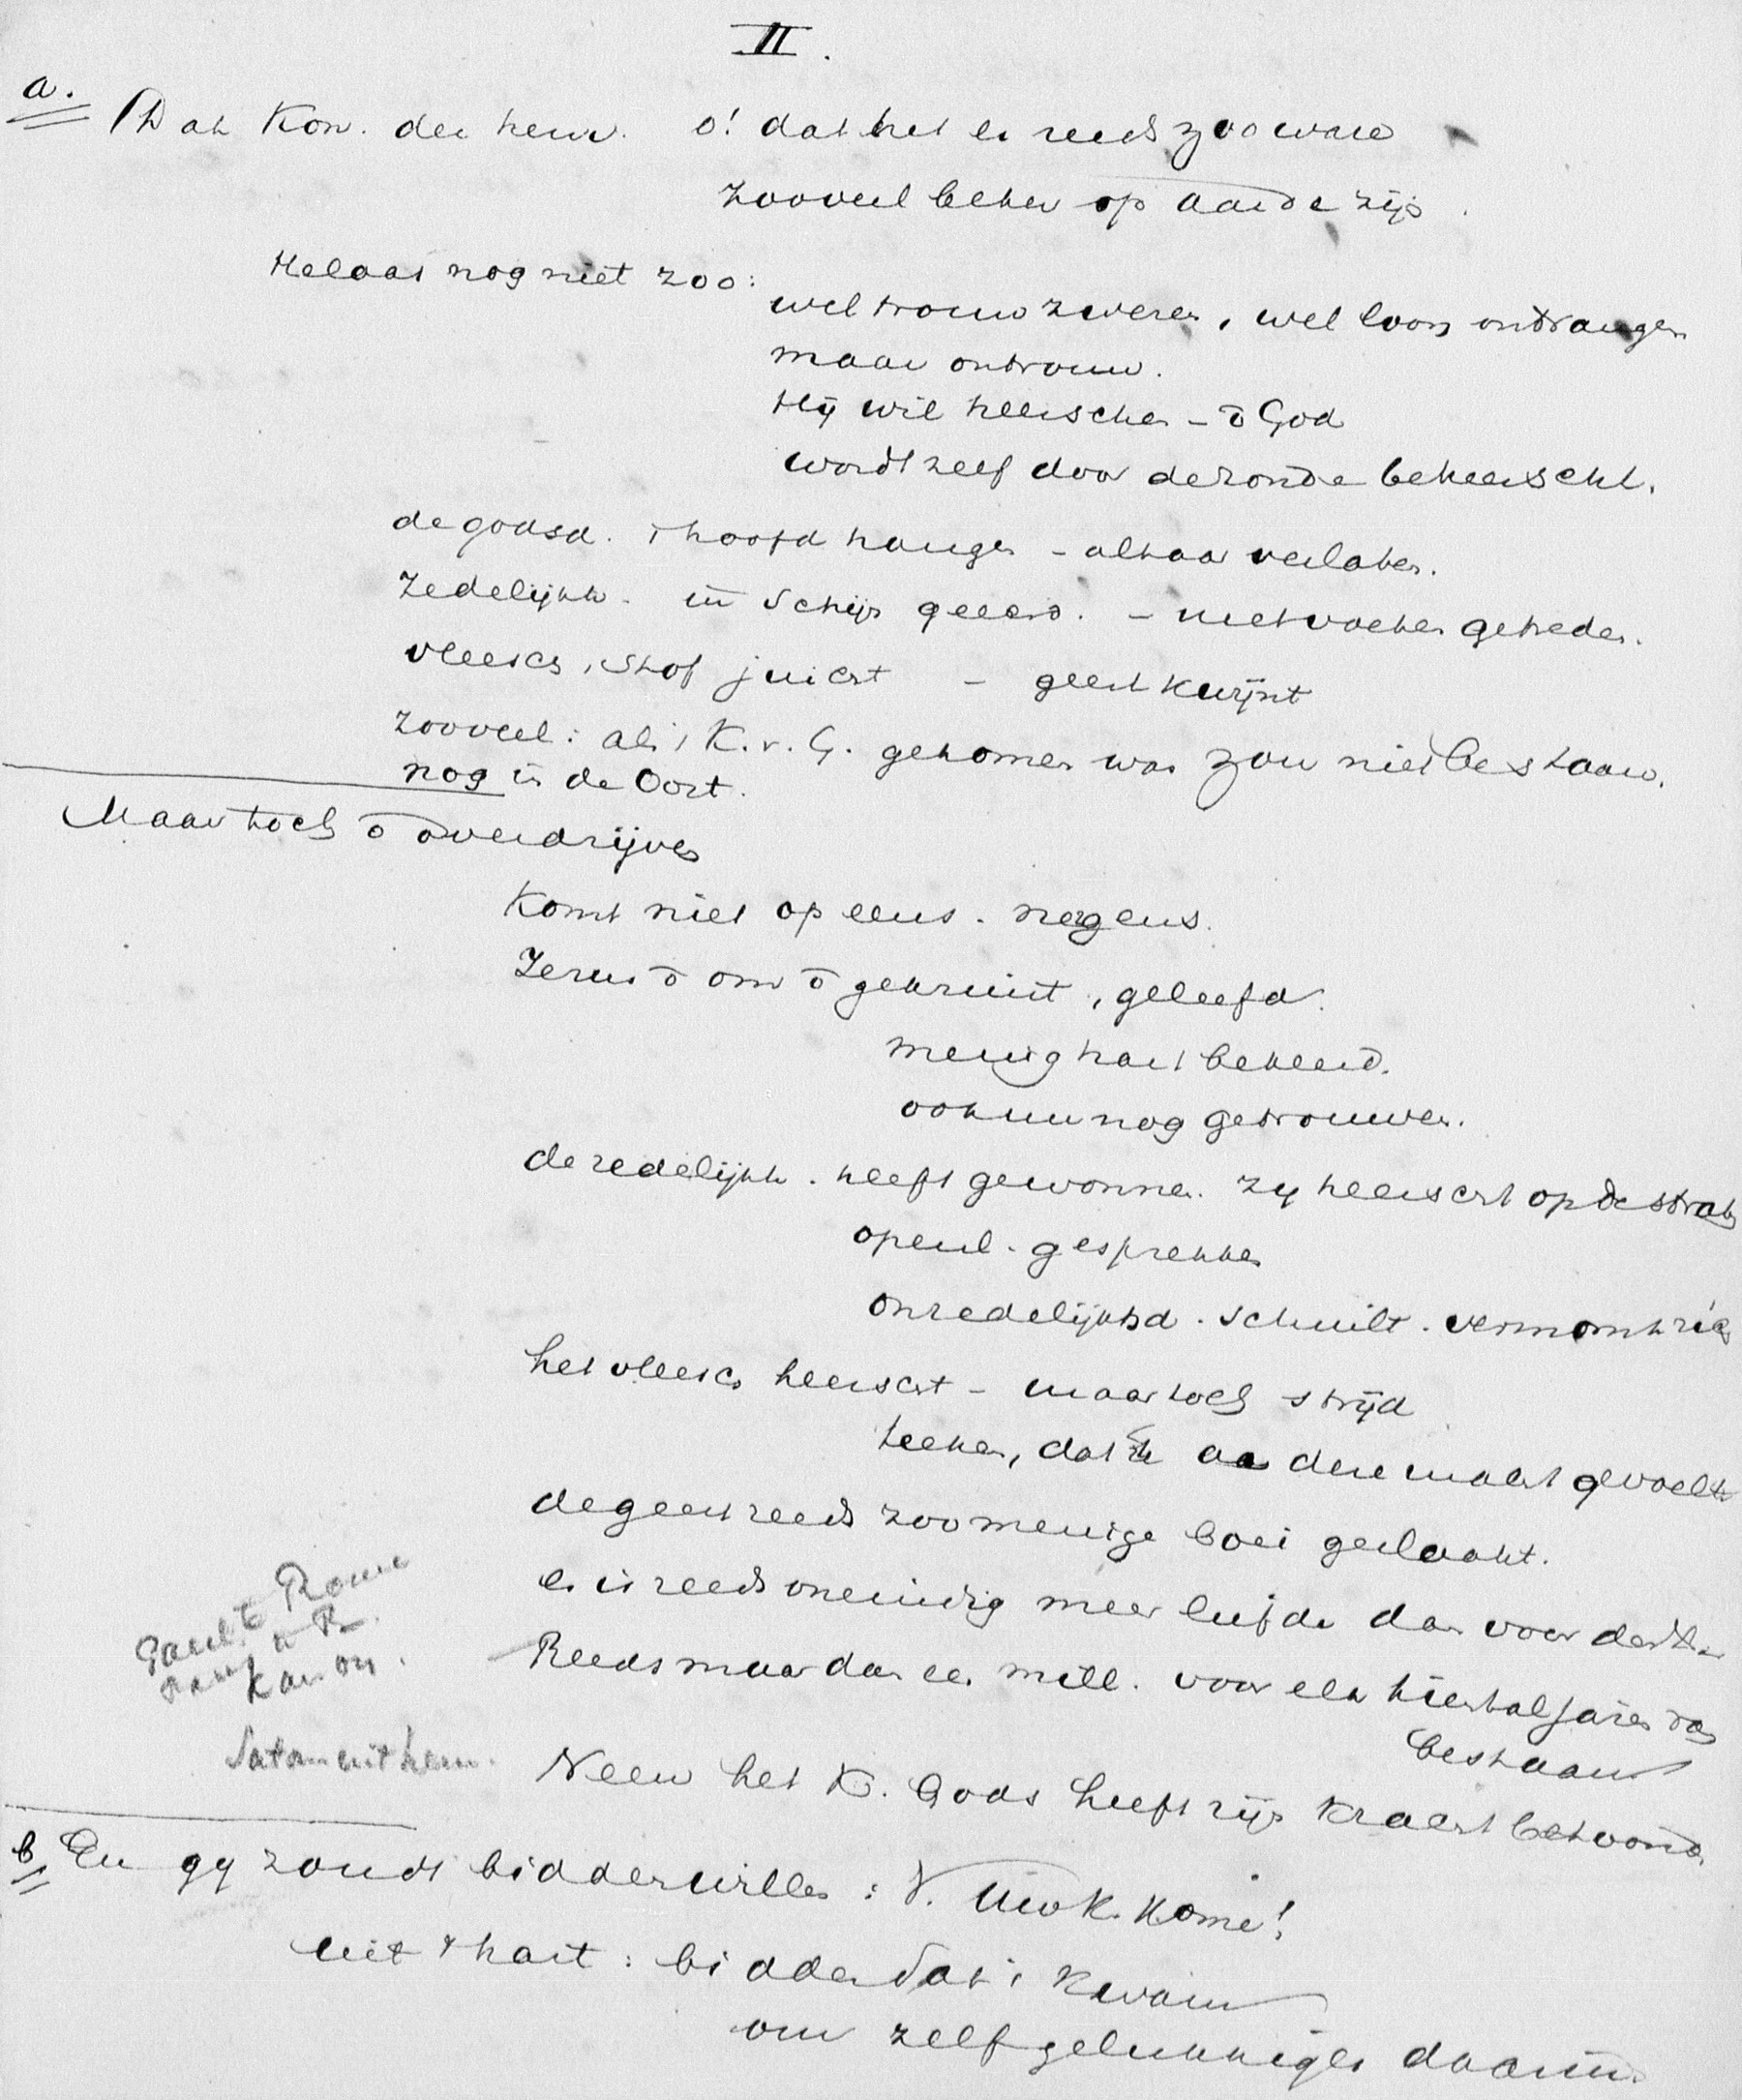 II.
a. Dat Kon. der hem. o! dat het er reeds zoo ware
zooveel beter op aarde zijn.
Helaas nog niet zoo:
wel trouw zweren, wel loon ontvangen
maar ontrouw.
Hij wil heerschen – ō God
wordt zelf door de zonde beheerscht.
de godsd. 't hoofd hangen – altaar verlaten.
Zedelijkh. in schijn geëerd. – met voeten getreden.
vleesch, stof juicht – geest kwijnt
zooveel: als 't K. v. G. gekomen was zou niet bestaan.
nog in de Oort.
Maar toch ō overdrijven
Komt niet op eens. nergens.
Jezus ō om ō gekruist, geleefd.
menig hart bekeerd.
ook nu nog getrouwen.
de zedelijkh. heeft gewonnen. zij heerscht op de straten
openl. gesprekken
onzedelijkhd. schuilt. vermomt zich
het vleesch heerscht – maar toch strijd
teeken, dat de andere macht gevoelt
de geest reeds zoo menige boei geslaakt.
er is reeds oneindig meer liefde dan voor
Reeds maar dan een mill. voor elk tiental jaren dat
bestaan
Neen het K. Gods heeft zijn kracht betoond.
Paul. te Rome
Paus a R.
Kanon.
Satan uit hem.
b En gij zoudt bidden willen: V. Uw K. kome!
uit 't hart: bidden dat 't kwam
om zelf gelukkiger daarin.